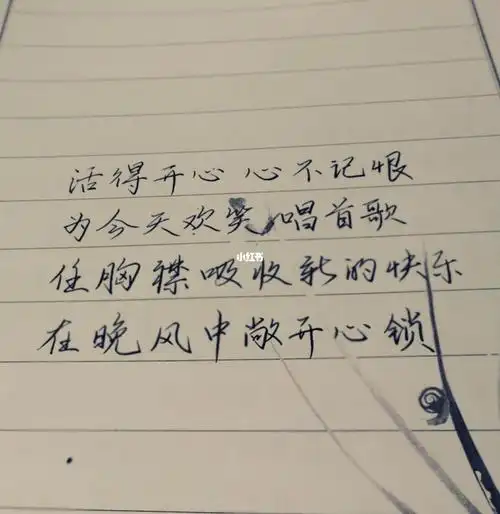 活得开心 心不记恨
为今天欢笑 唱首歌
任胸襟吸收新的快乐
在晚风中敞开心锁
小红书